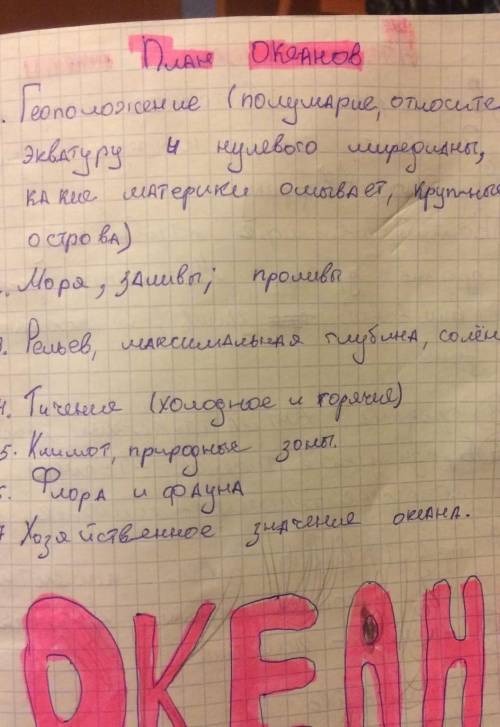 План Океанов
. Геоположение (полумарие, относите
экватуру и нулевого миредианы,
какие материки омывает, крупные
острова)
. Моря, заливы; проливы
3. Рельев, максимальная глубина, солён
4. Тичения (холодное и горячие)
5. Климот, природные зоны.
6. Флора и фауна
7 Хозяйственное значение океана.
ОКЕАН